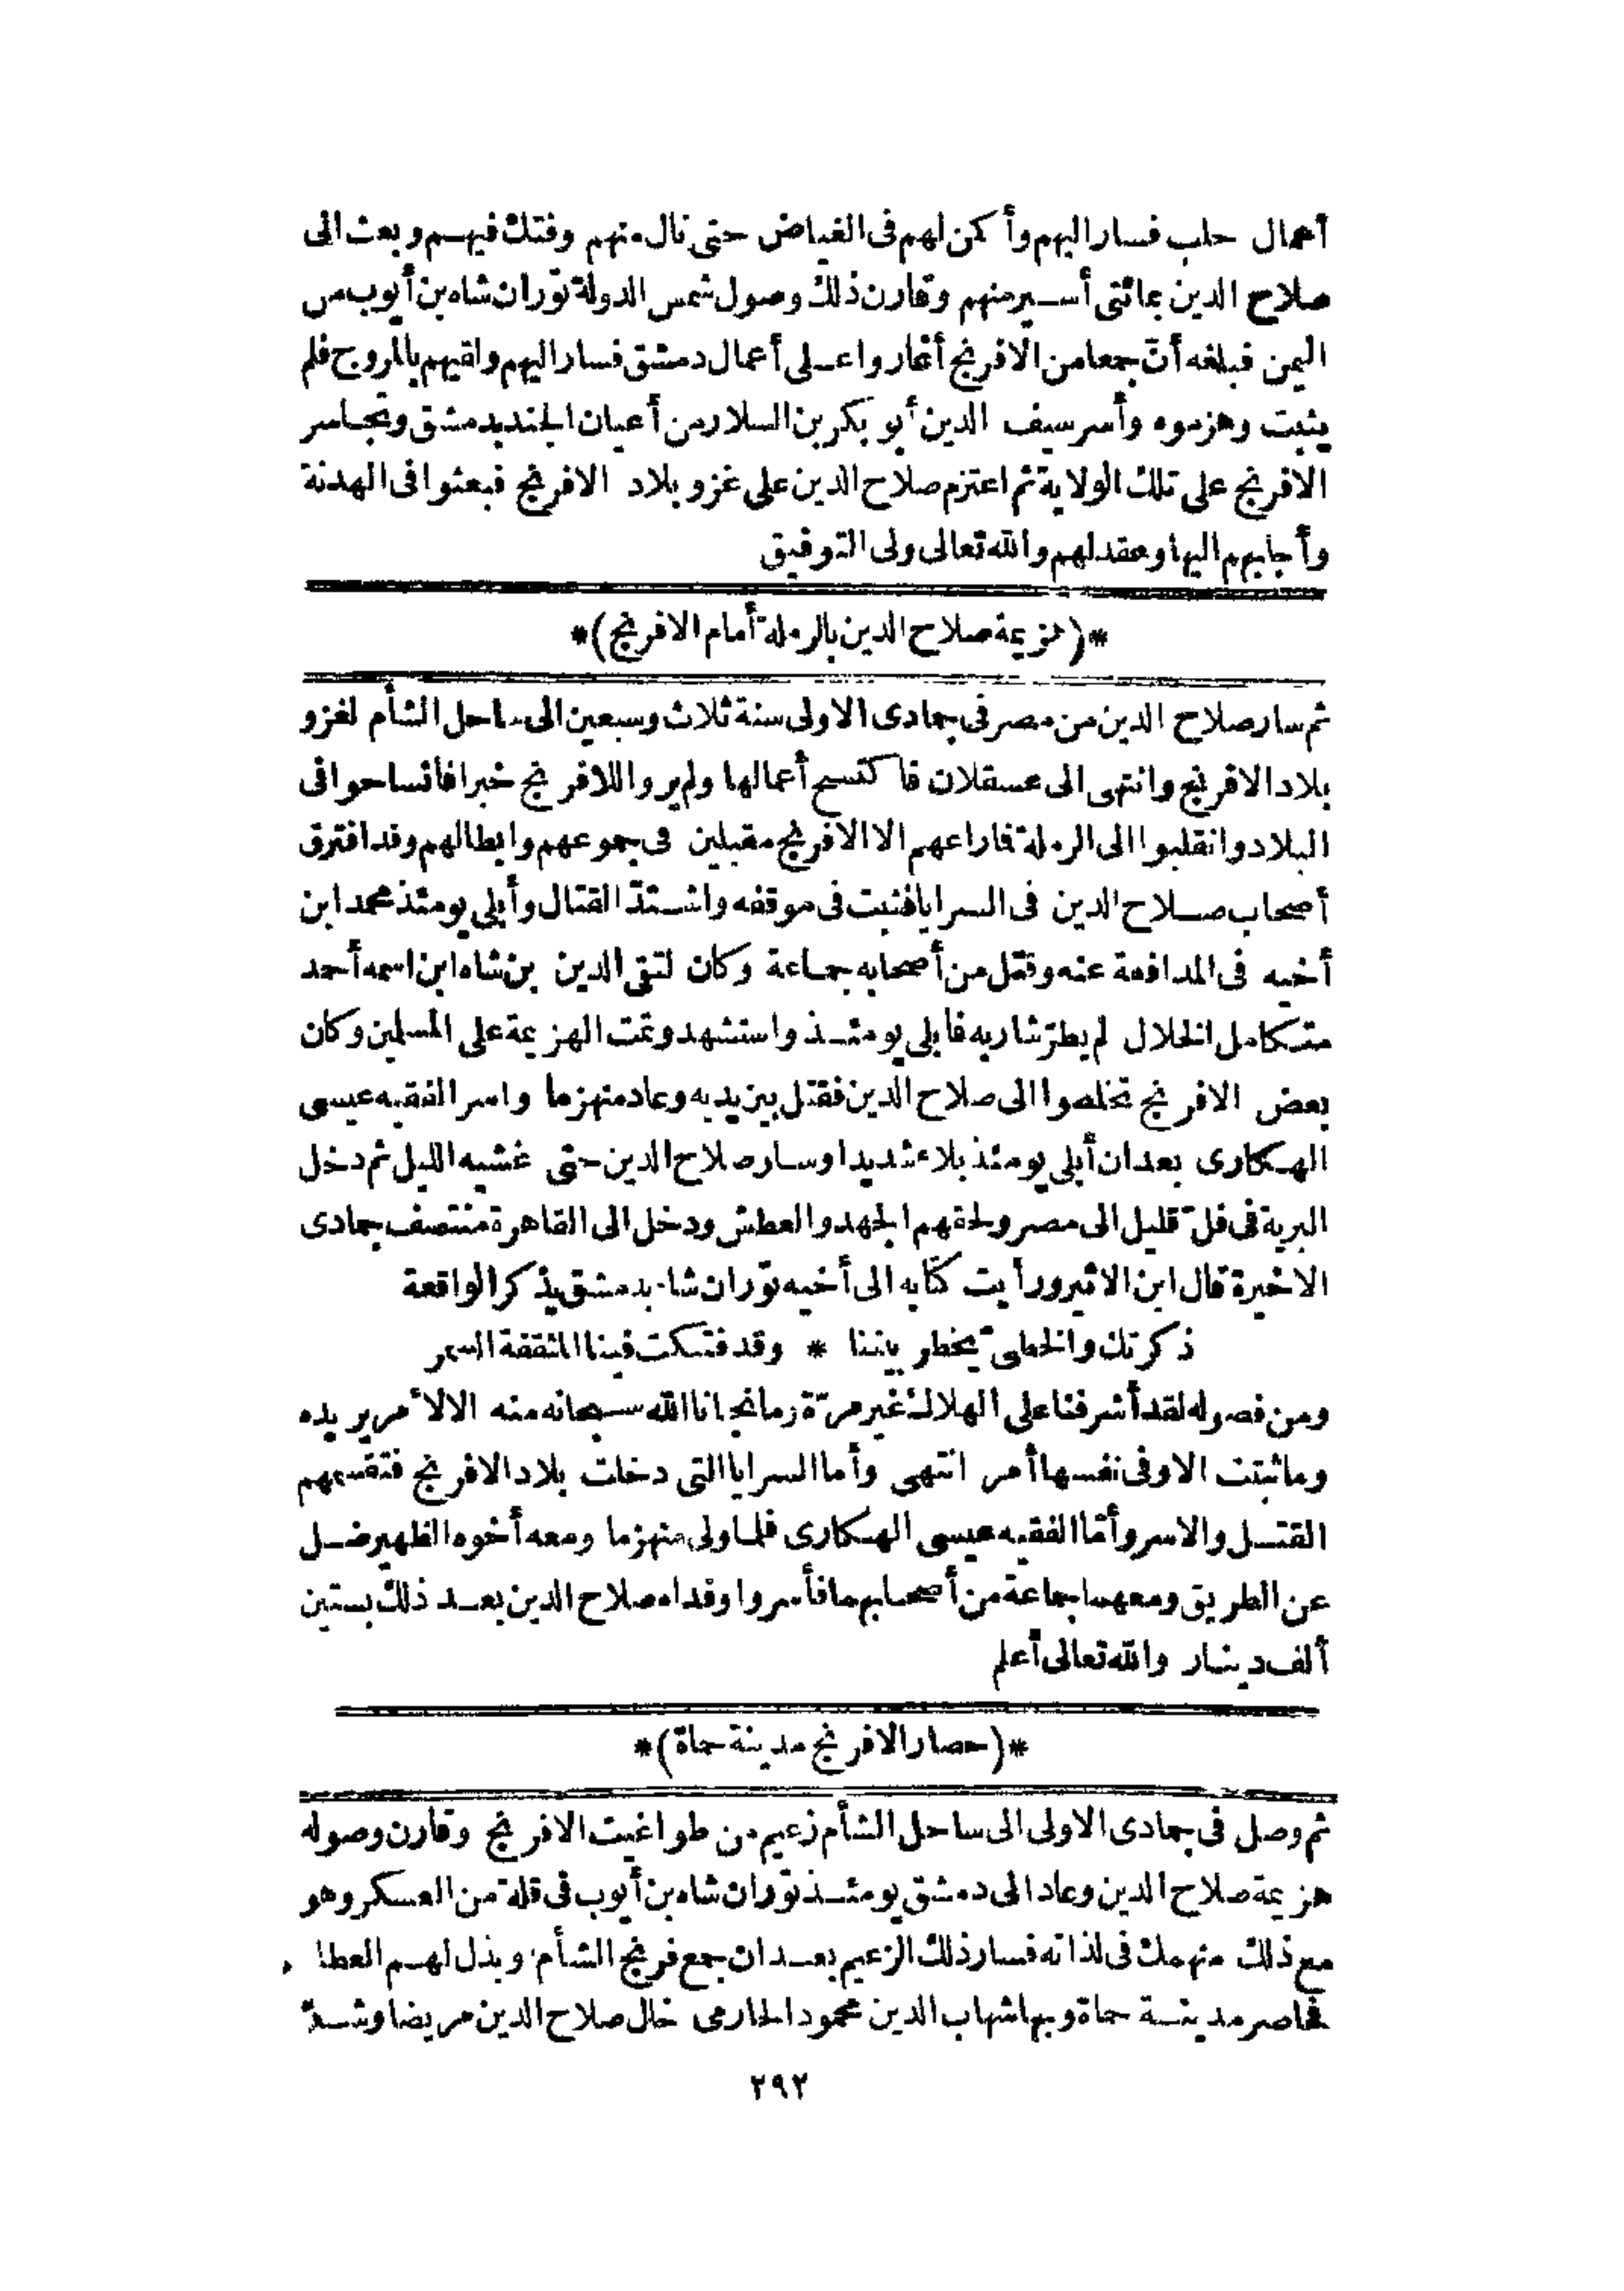 أعمال حلب فسار اليهم وأكمن لهم فى الغياض حتى نال منهم وفتك فيهم وبعث الى
صلاح الدين بمائتى أسير منهم وقارن ذلك وصول شمس الدولة تورّان شاه بن أيوب من
اليمن فبلغه أنّ جمعا من الافرنج أغار واعلى أعمال دمشق فسار اليهم ولقيهم بالمروج فلم
يثبت وهزموه وأسر سيف الدين أبو بكر بن السلار من أعيان الجند بدمشق وتجاسر
الافرنج على تلك الولاية ثم اعتزم صلاح الدين على غزو بلاد الافرنج فبعثوا فى الهدنة
وأجابهم اليها وعقد لهم والله تعالى ولى التوفيق
*(هزيمة صلاح الدين بالرملة أمام الافرنج)*
ثم سار صلاح الدين من مصر فى جمادى الاولى سنة ثلاث وسبعين الى ساحل الشأم لغزو
بلاد الافرنج وانتهى الى عسقلان فاكتسح أعمالها ولم يروا للافرنج خبرا فانساحوا فى
البلاد وانقلبوا الى الرملة فاراعهم الا الافرنج مقبلين فى جموعهم وابطالهم وقد افترق
أصحاب صلاح الدين فى السرايا فثبت فى موقفه واشتدّ القتال وأبلى يومئذ محمد ابن
أخيه فى المدافعة عنه وقتل من أصحابه جماعة وكان لتقى الدين بن شاه ابن اسمه أحمد
متكامل الخلال لم يطرّ شاربه فابلى يومئذ واستشهد وتمت الهزيمة على المسلمين وكان
بعض الافرنج تخلصوا الى صلاح الدين فقتل بين يديه وعاد منهزما واسر الفقيه عيسى
الهكارى بعد ان أبلى يومئذ بلاء شديدا وسار صلاح الدين حتى غشيه الليل ثم دخل
البرية فى فلّ قليل الى مصر ولحقهم الجهد والعطش ودخل الى القاهرة منتصف جمادى
الاخيرة قال ابن الاثير ورأيت كتابه الى أخيه تورّان شاه بدمشق يذكر الواقعة
ذكرتك والخطىّ يخطر بيننا * وقد فتكت فينا المثقفة السمر
ومن فصوله لقد أشرفنا على الهلاك غير مرّة وما نجانا الله سبحانه منه الا لأمر يريده
وما ثبتت الا وفى نفسها أمر انتهى وأما السرايا التى دخلت بلاد الافرنج فتقسمهم
القتل والاسر وأمّا الفقيه عيسى الهكارى فلما ولى منهزما ومعه أخوه الظهير ضل
عن الطريق ومعهما جماعة من أصحابهما فأسروا وفداه صلاح الدين بعد ذلك بستين
ألف دينار والله تعالى أعلم
*(حصار الافرنج مدينة حماة)*
ثم وصل فى جمادى الاولى الى ساحل الشأم زعيم من طواغيت الافرنج وقارن وصوله
هزيمة صلاح الدين وعاد الى دمشق يومئذ تورّان شاه بن أيوب فى قلة من العسكر وهو
مع ذلك منهمك فى لذاته فسار ذلك الزعيم بعد ان جمع فرنج الشأم وبذل لهم العطاء
فحاصر مدينة حماة وبها شهاب الدين محمود الحارمى خال صلاح الدين مريضا وشدّ
٢٩٢